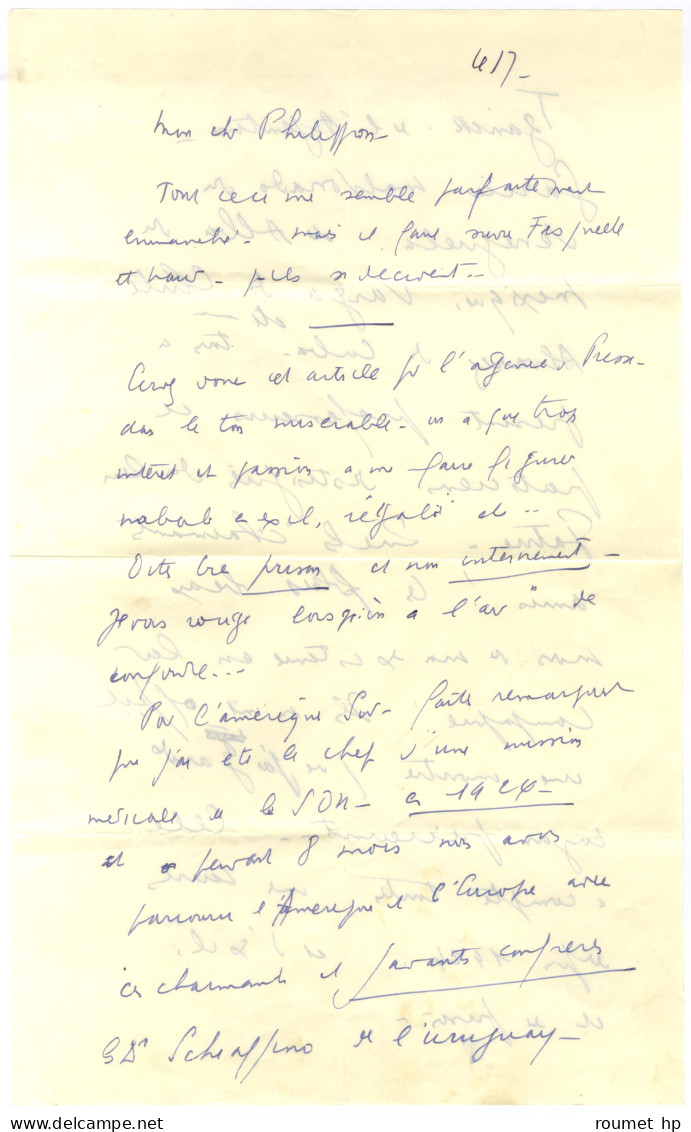 le 17
Mon cher Philippon
Tout ceci me semble parfaitement
emmanché. mais il faut suivre Fasquelle
et pour qu'ils se décident.
cet article pr l'agence Presse
dans le ton misérable. on a que trop
intérêt et passion a me faire figurer
malade en exil, réfugié etc..
Dites bien prison et non internement.
Je vois rouge lorsqu'on a l'air de
confondre...
Por l'amérique Sud. faites remarquer
que j'ai été le chef d'une mission
médicale de la SDN. en 1924.
et pendant 8 mois nous avons
parcouru l'Amérique et l'Europe avec
ces charmants et savants confrères
Dr Scheaffino de l'Uruguay.
roumet hp